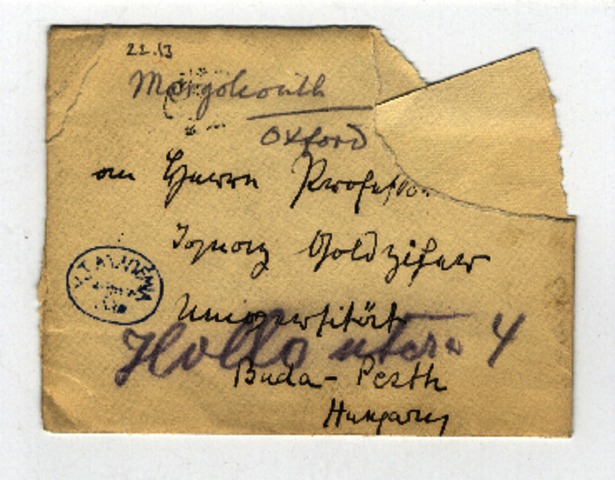 22.13
Margoliouth
Oxford
an Herrn Professor
Ignaz Goldziher
Universität
Hollo utca 4
Buda-Pesth
Hungary